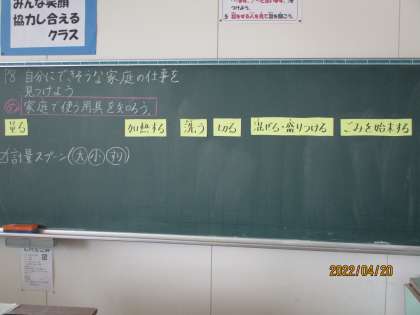 みんな笑顔
協力し合える
クラス
P8 自分にできそうな家庭の仕事を
見つけよう
家庭で使う用具を知ろう。
量る
加熱する
洗う
切る
混ぜる・盛りつける
ごみを始末する
計量スプーン
大
小
2022/04/20